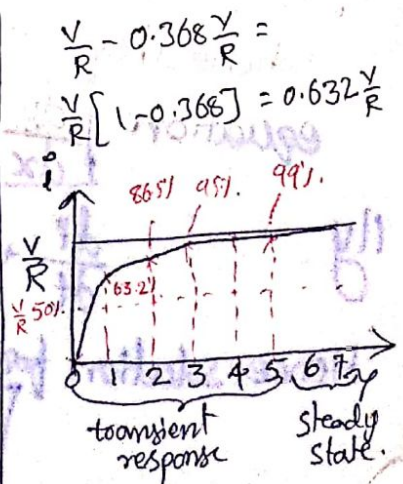 V/R - 0.368 V/R =
V/R [1-0.368] = 0.632 V/R
i
86.5% 95% 99%
V/R
63.2%
V/R 50%
0 1 2 3 4 5 6 7
transient response
steady state.